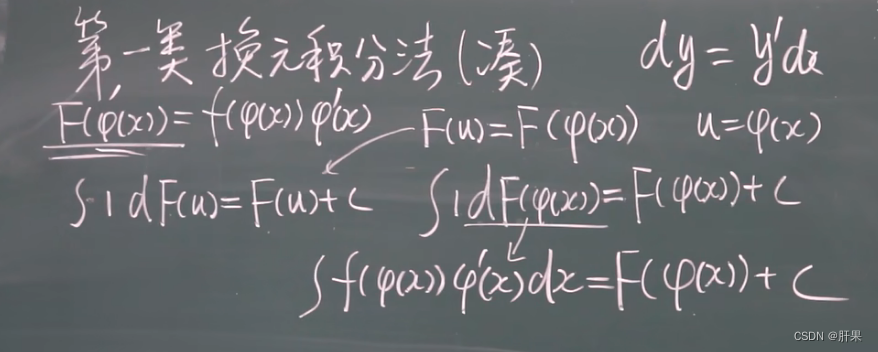 第一类换元积分法(凑) dy = y'dx
F'(φ(x)) = f(φ(x)) φ'(x) F(u) = F(φ(x)) u = φ(x)
∫ 1 dF(u) = F(u) + C ∫ 1 dF(φ(x)) = F(φ(x)) + C
∫ f(φ(x)) φ'(x) dx = F(φ(x)) + C
CSDN @肝果